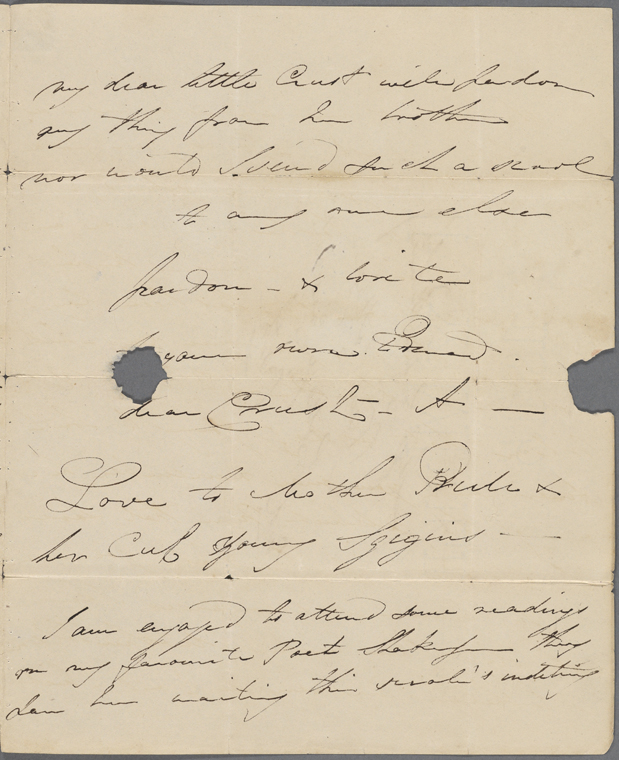 my dear little Crust will pardon
my thing from her brother
nor would I send such a scrawl
to any one else
pardon - & write
your own
dear Crust - A -
Love to Mother &
her Cub Young
I am engaged to attend some readings
on my favourite Poet they
I am here waiting this